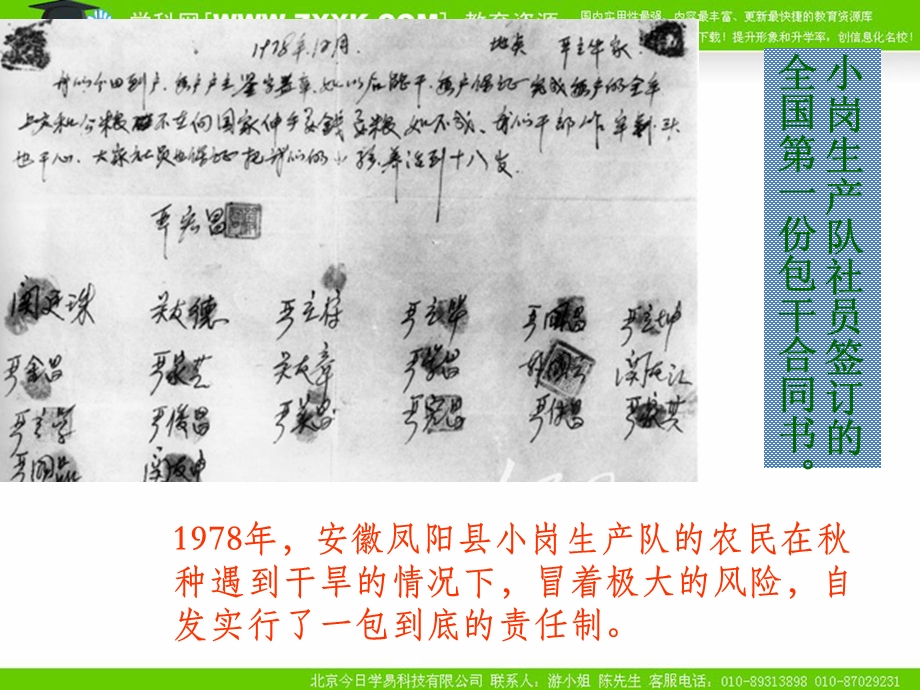 学科网[WWW.ZXXK.COM]-教育资源
国内实用性最强、内容最丰富、更新最快捷的教育资源库
下载！提升形象和升学率，创信息化名校！
1978年12月. 地点 严立华家
我们分田到户，每户户主签字盖章，如以后能干，每户保证完成每户的全年
上交和公粮 不在向国家伸手要钱要粮，如不成，我们干部作牢剎头
也干心，大家社员也保证把我们的小孩养活到十八岁.
严宏昌
关友德 严立符 严立华 严国昌 严立坤
严金昌 关友章 严学昌
严俊昌 严美昌 严宏昌 严付昌 严家其
严国品 关友申
小岗生产队社员签订的
全国第一份包干合同书。
1978年，安徽凤阳县小岗生产队的农民在秋
种遇到干旱的情况下，冒着极大的风险，自
发实行了一包到底的责任制。
北京今日学易科技有限公司 联系人：游小姐 陈先生 客服电话：010-89313898 010-87029231